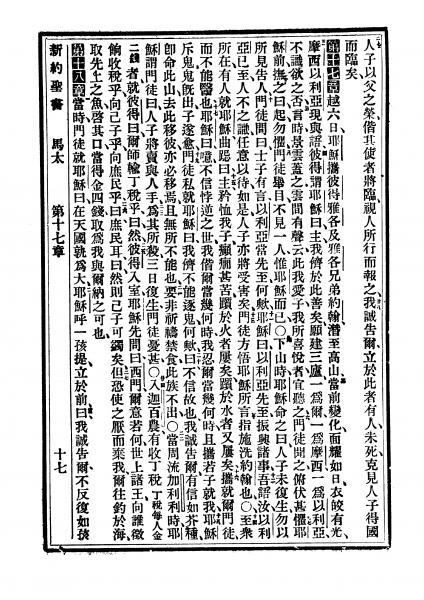 人子以父之榮偕其使者將臨視人所行而報之我誠告爾立於此者有人未死克見人子得國
而臨矣
第十七章越六日耶穌攜彼得雅各及雅各兄弟約翰潛至高山當前變化而耀如日衣皎有光
摩西以利亞現與語彼得謂耶穌曰主我儕於此善矣願建三廬一爲爾一爲摩西一爲以利亞
不識欲之否言時景雲蓋之雲間有聲云此我愛子我所喜悅者宜聽之門徒聞之俯伏甚懼耶
穌前撫之曰起勿懼門徒舉目不見一人惟耶穌而已○下山時耶穌命之曰人子未復生勿以
所見告人門徒問曰士子有言以利亞當先至何歟耶穌曰以利亞先至振興諸事吾語汝以利
亞已至人不之識任意以待如是人子亦將受害矣門徒方悟耶穌所言指施洗約翰也○至衆
所在有人就耶穌曲跽曰主矜恤我子癲癇甚苦躓於火者屢矣躓於水者又屢矣攜就爾門徒
而不能醫也耶穌曰噫不信悖逆之世我偕爾當幾何時我忍爾當幾何時且攜若子就我耶穌
斥鬼鬼旣出子遂愈門徒私就耶穌曰我儕不能逐鬼何歟曰不信故也我誠告爾有信如芥種
卽命此山去此移彼亦必移焉且無所不能也要非祈禱禁食此族不出○當周流加利利時耶
穌謂門徒曰人子將賣與人手爲其所殺三日復生門徒憂甚○入迦百農有收丁稅丁稅每人金
二錢者就彼得曰爾師輸丁稅乎曰然彼得入室耶穌先問曰西門爾意若何世上諸王向誰徵
餉收稅乎向己子乎向庶民乎曰庶民耳曰然則己子可蠲矣但恐使之厭而棄我爾往釣於海
取先上之魚啓其口當得金四錢取爲我與爾納之可也
第十八章當時門徒就耶穌曰在天國孰爲大耶穌呼一孩提立於前曰我誠告爾不反復如孩
新約聖書 馬太 第十七章 十七